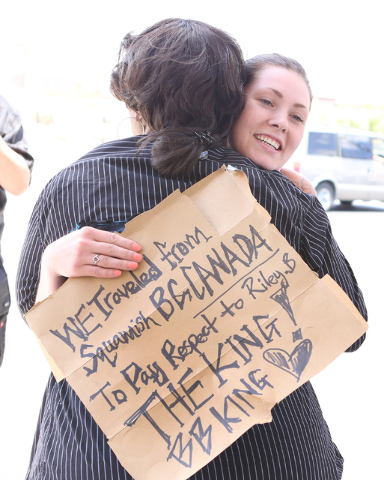 WE Traveled from
Squamish BC, CANADA
To Pay Respect to Riley.B!
THE KING
BB KING